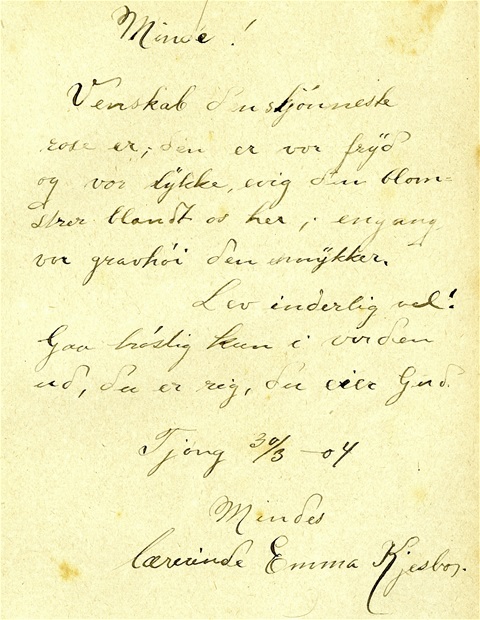 Minde!
Venskab den skjónneste
rose er; den er vor frÿd
og vor lÿkke, evig den blom=
strer blandt os her, i engang
vor gravhói den smÿkker.
Lev inderlig vel!
Gaa tróstig kun i verden
ud, du er rig, du eier Gud.
Tjóng 30/3 - 04
Mindes
Lærerinde Emma Kjesbo.